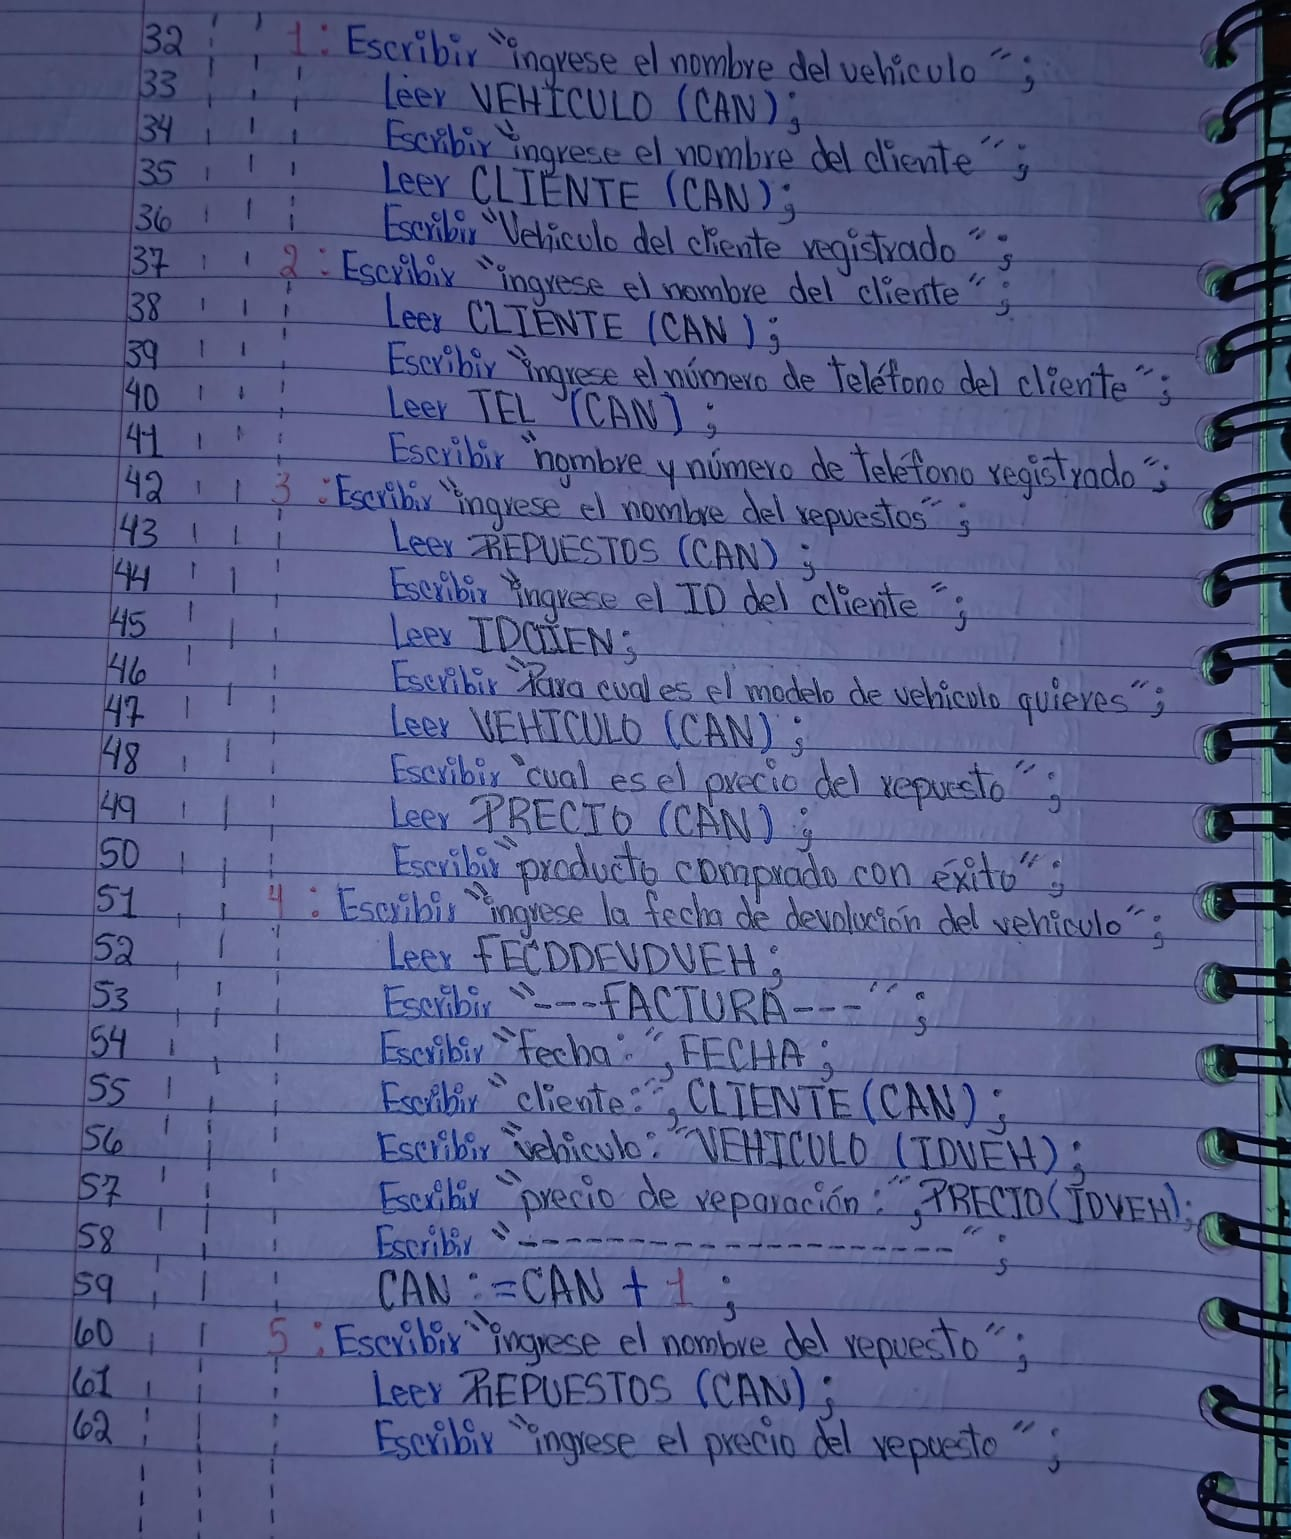 32 1: Escribir "ingrese el nombre del vehiculo";
33 Leer VEHICULO (CAN);
34 Escribir "ingrese el nombre del cliente";
35 Leer CLIENTE (CAN);
36 Escribir "Vehiculo del cliente registrado";
37 2: Escribir "ingrese el nombre del cliente";
38 Leer CLIENTE (CAN);
39 Escribir "ingrese el número de teléfono del cliente";
40 Leer TEL (CAN);
41 Escribir "nombre y número de teléfono registrado";
42 3: Escribir "ingrese el nombre del repuestos";
43 Leer REPUESTOS (CAN);
44 Escribir "ingrese el ID del cliente";
45 Leer IDCIEN;
46 Escribir "Para cual es el modelo de vehiculo quieres";
47 Leer VEHICULO (CAN);
48 Escribir "cual es el precio del repuesto";
49 Leer PRECIO (CAN);
50 Escribir "producto comprado con éxito";
51 4: Escribir "ingrese la fecha de devolución del vehiculo";
52 Leer FECDDEVDVEH;
53 Escribir "---FACTURA---";
54 Escribir "fecha:", FECHA;
55 Escribir "cliente:", CLIENTE (CAN);
56 Escribir "vehiculo:" VEHICULO (IDVEH);
57 Escribir "precio de reparación:", PRECIO (IDVEH);
58 Escribir "--------------------";
59 CAN := CAN + 1;
60 5: Escribir "ingrese el nombre del repuesto";
61 Leer REPUESTOS (CAN);
62 Escribir "ingrese el precio del repuesto";